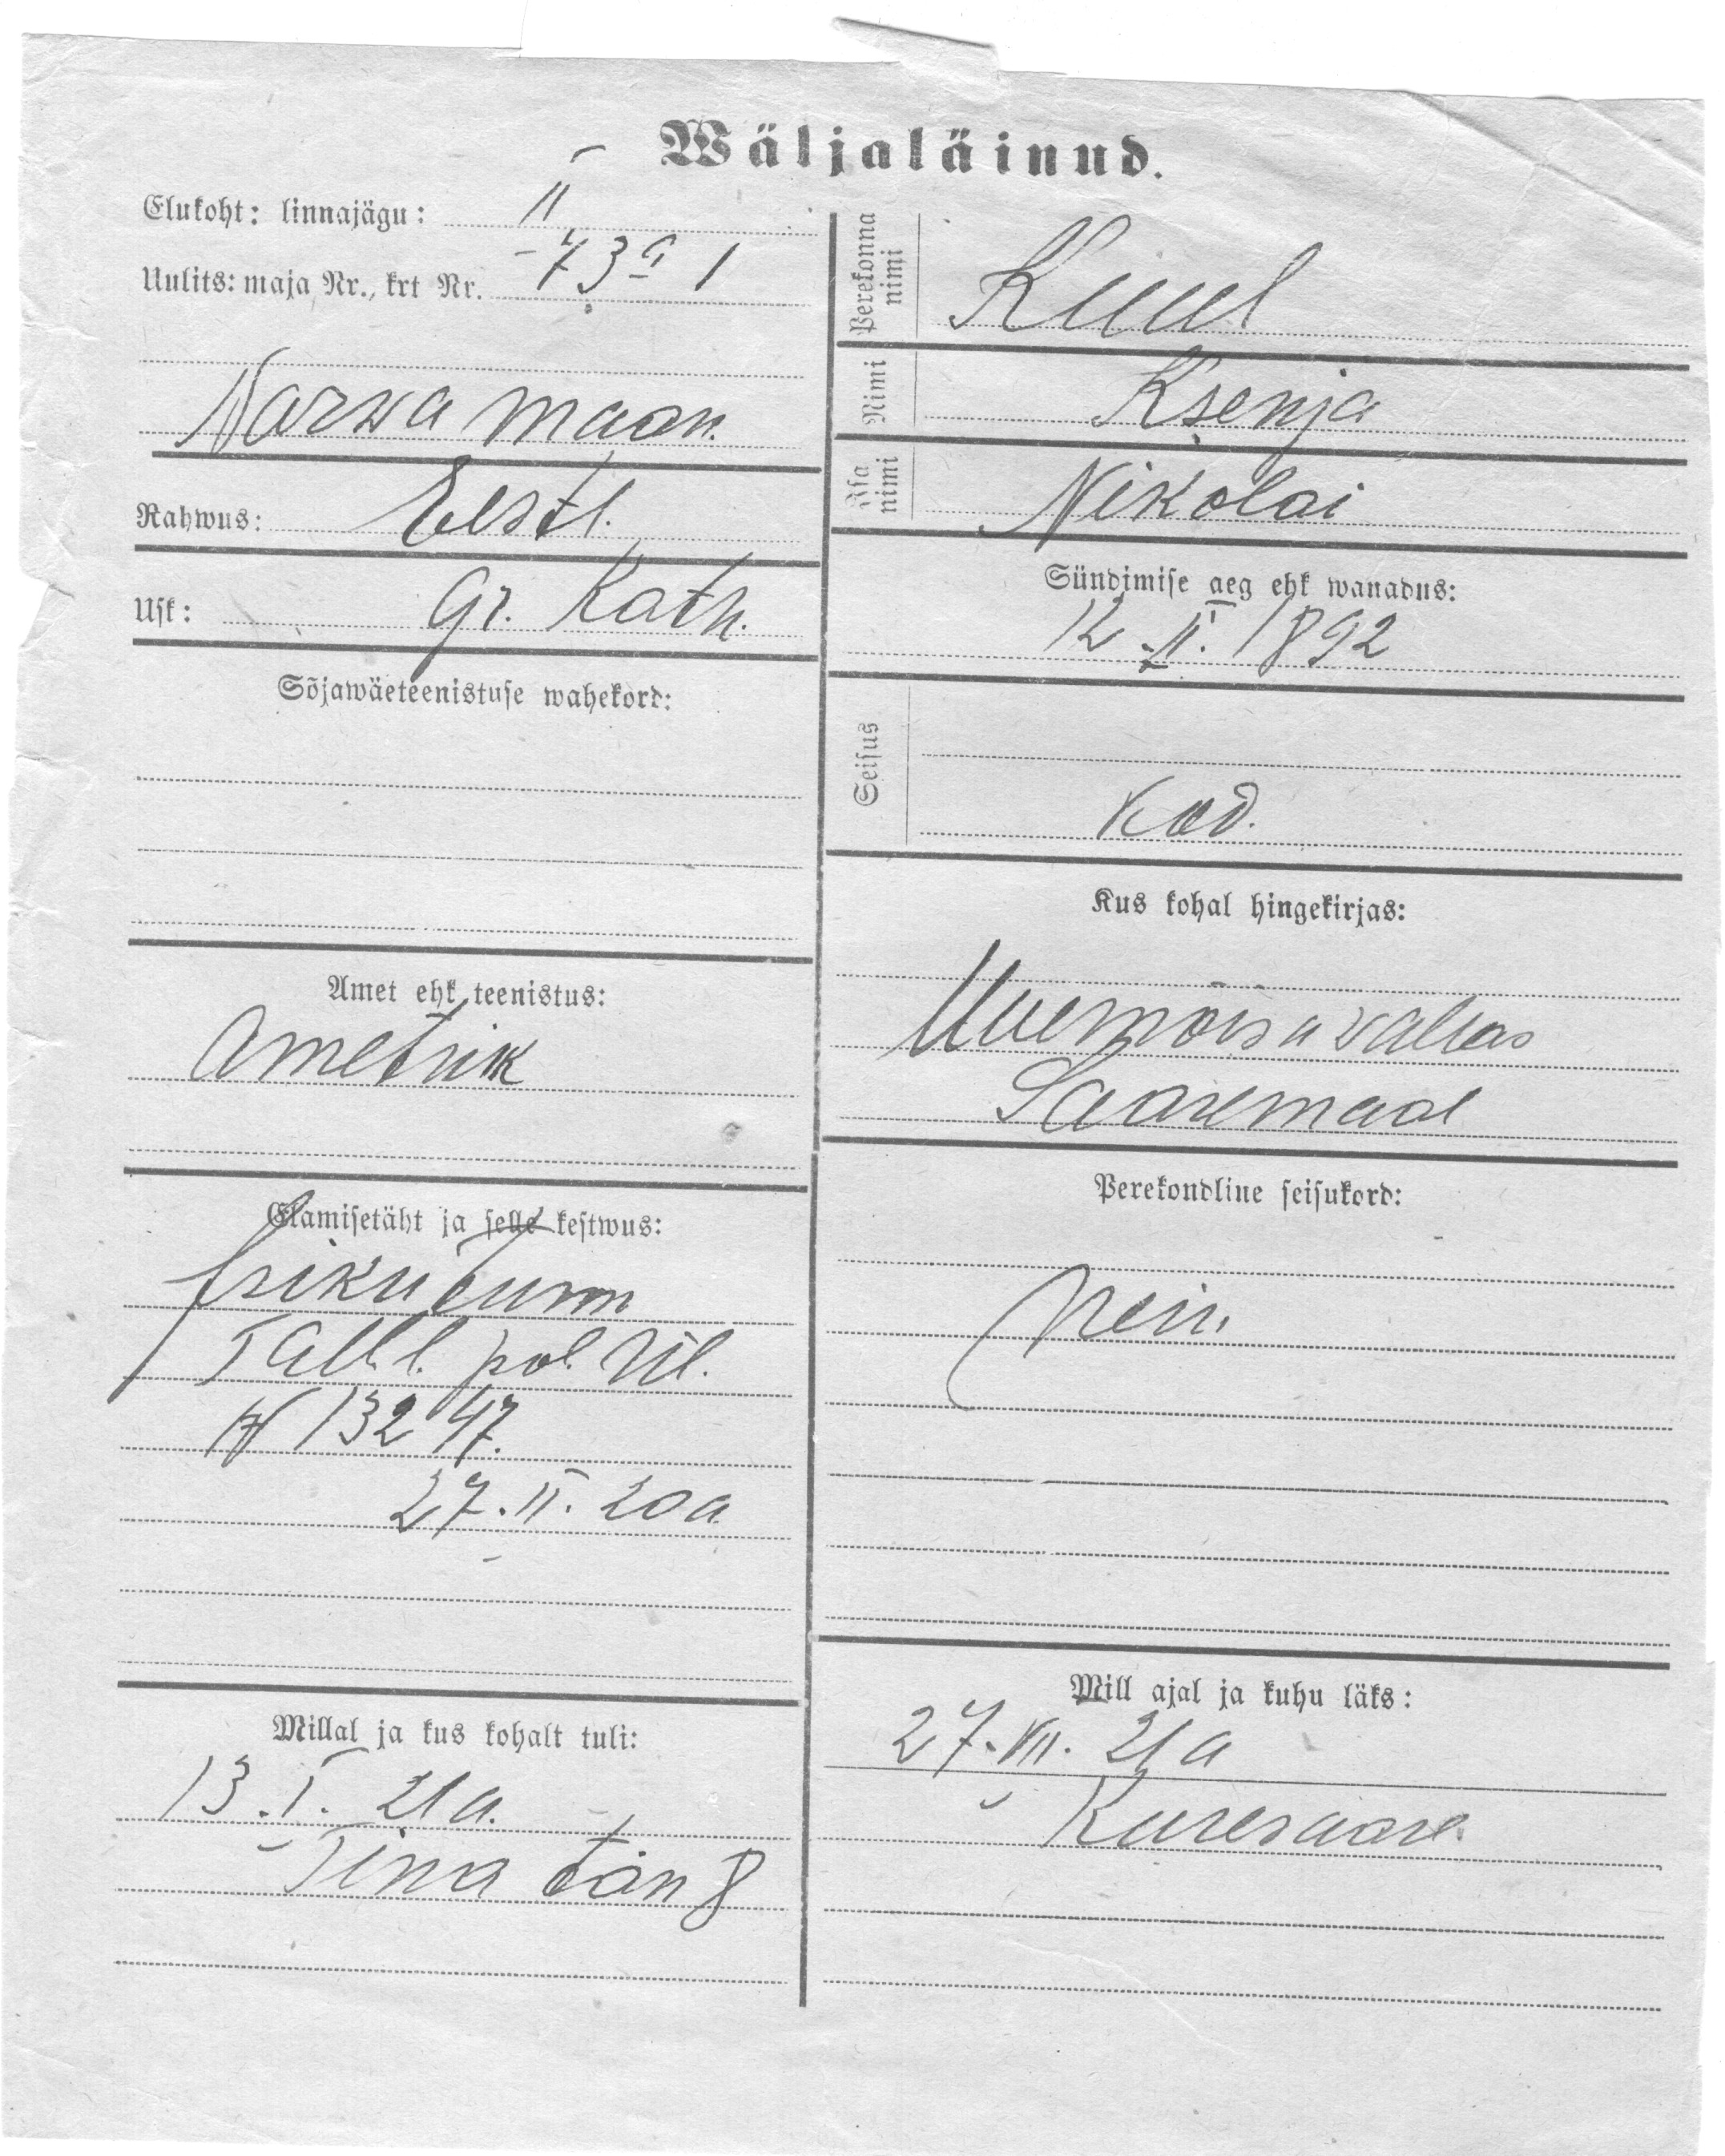 Wäljaläinud.
Elukoht: linnajägu: II
Uulits: maja Nr., krt Nr. 73a 1
Narwa maan.
Rahwus: Eestl.
Usk: Gr. Kath.
Sõjawäeteenistuse wahekord:
Amet ehk teenistus:
Ametnik
Elamisetäht ja selle kestwus:
Isikutunn
Tall. l. pol. Vil.
№ 13247.
27. II. 20 a
Millal ja kus kohalt tuli:
13. I. 21 a.
Tina tän 8
Perekonna nimi
Kuul
Nimi
Ksenja
Isa nimi
Nikolai
Sündimise aeg ehk wanadus:
12. II. 1892
Seisus
Kod.
Kus kohal hingekirjas:
Uuemõisa wallas
Saaremaal
Perekondline seisukord:
Mill ajal ja kuhu läks:
27. VII. 21 a
Kuresaare